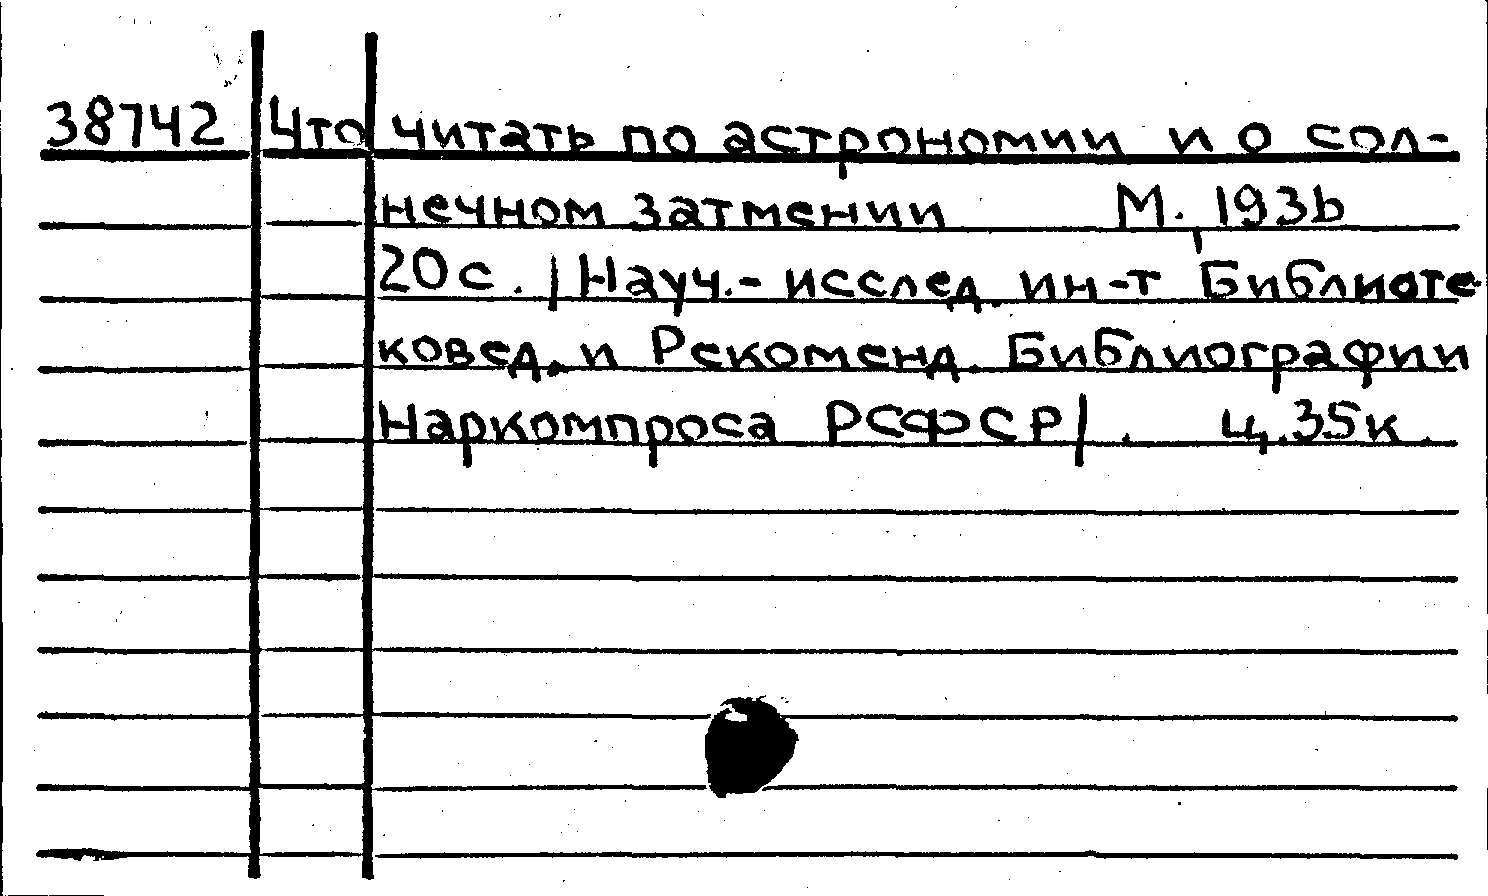 38742 Что читать по астрономии и о сол-
нечном затмении М. 1936
20 с. | Науч.- исслед. ин-т Библиоте
ковед. и Рекоменд. Библиографии
Наркомпроса РСФСР | . ц. 35 к.